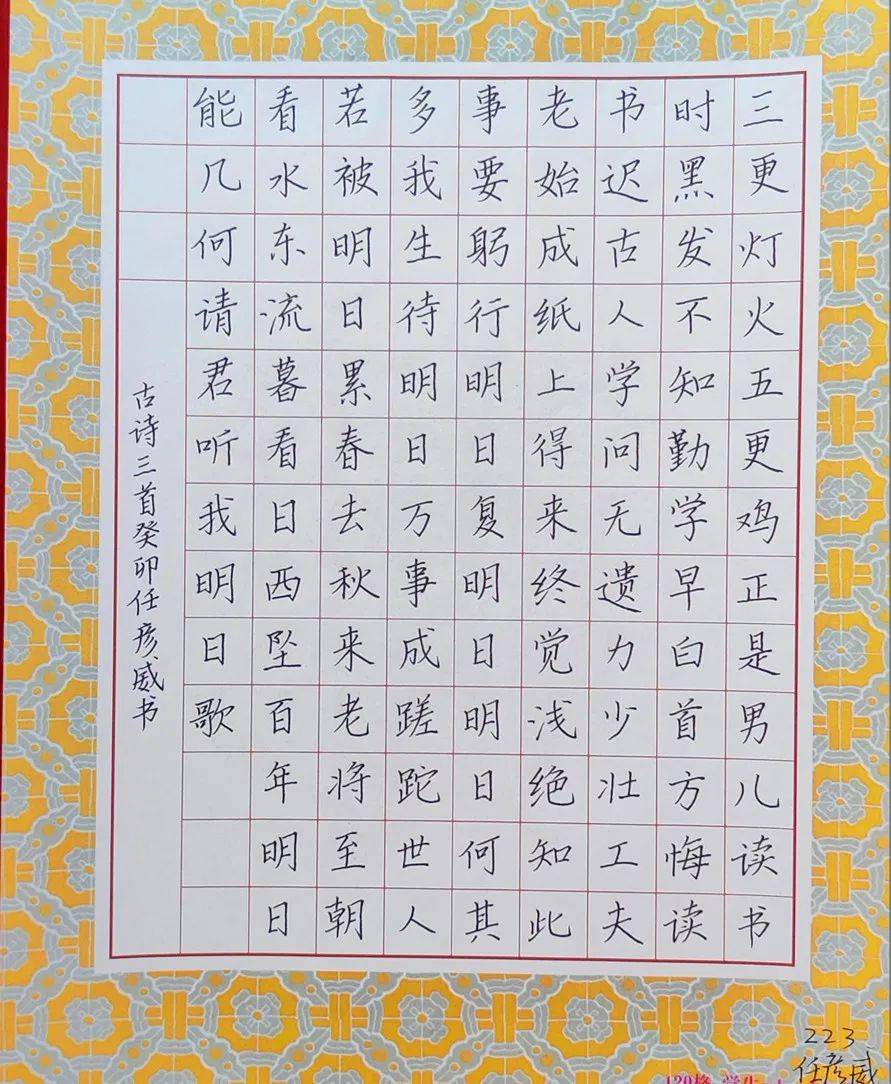 三更灯火五更鸡正是男儿读书
时黑发不知勤学早白首方悔读
书迟古人学问无遗力少壮工夫
老始成纸上得来终觉浅绝知此
事要躬行明日复明日明日何其
多我生待明日万事成蹉跎世人
若被明日累春去秋来老将至朝
看水东流暮看日西坠百年明日
能几何请君听我明日歌
古诗三首癸卯任彦威书
223
任彦威